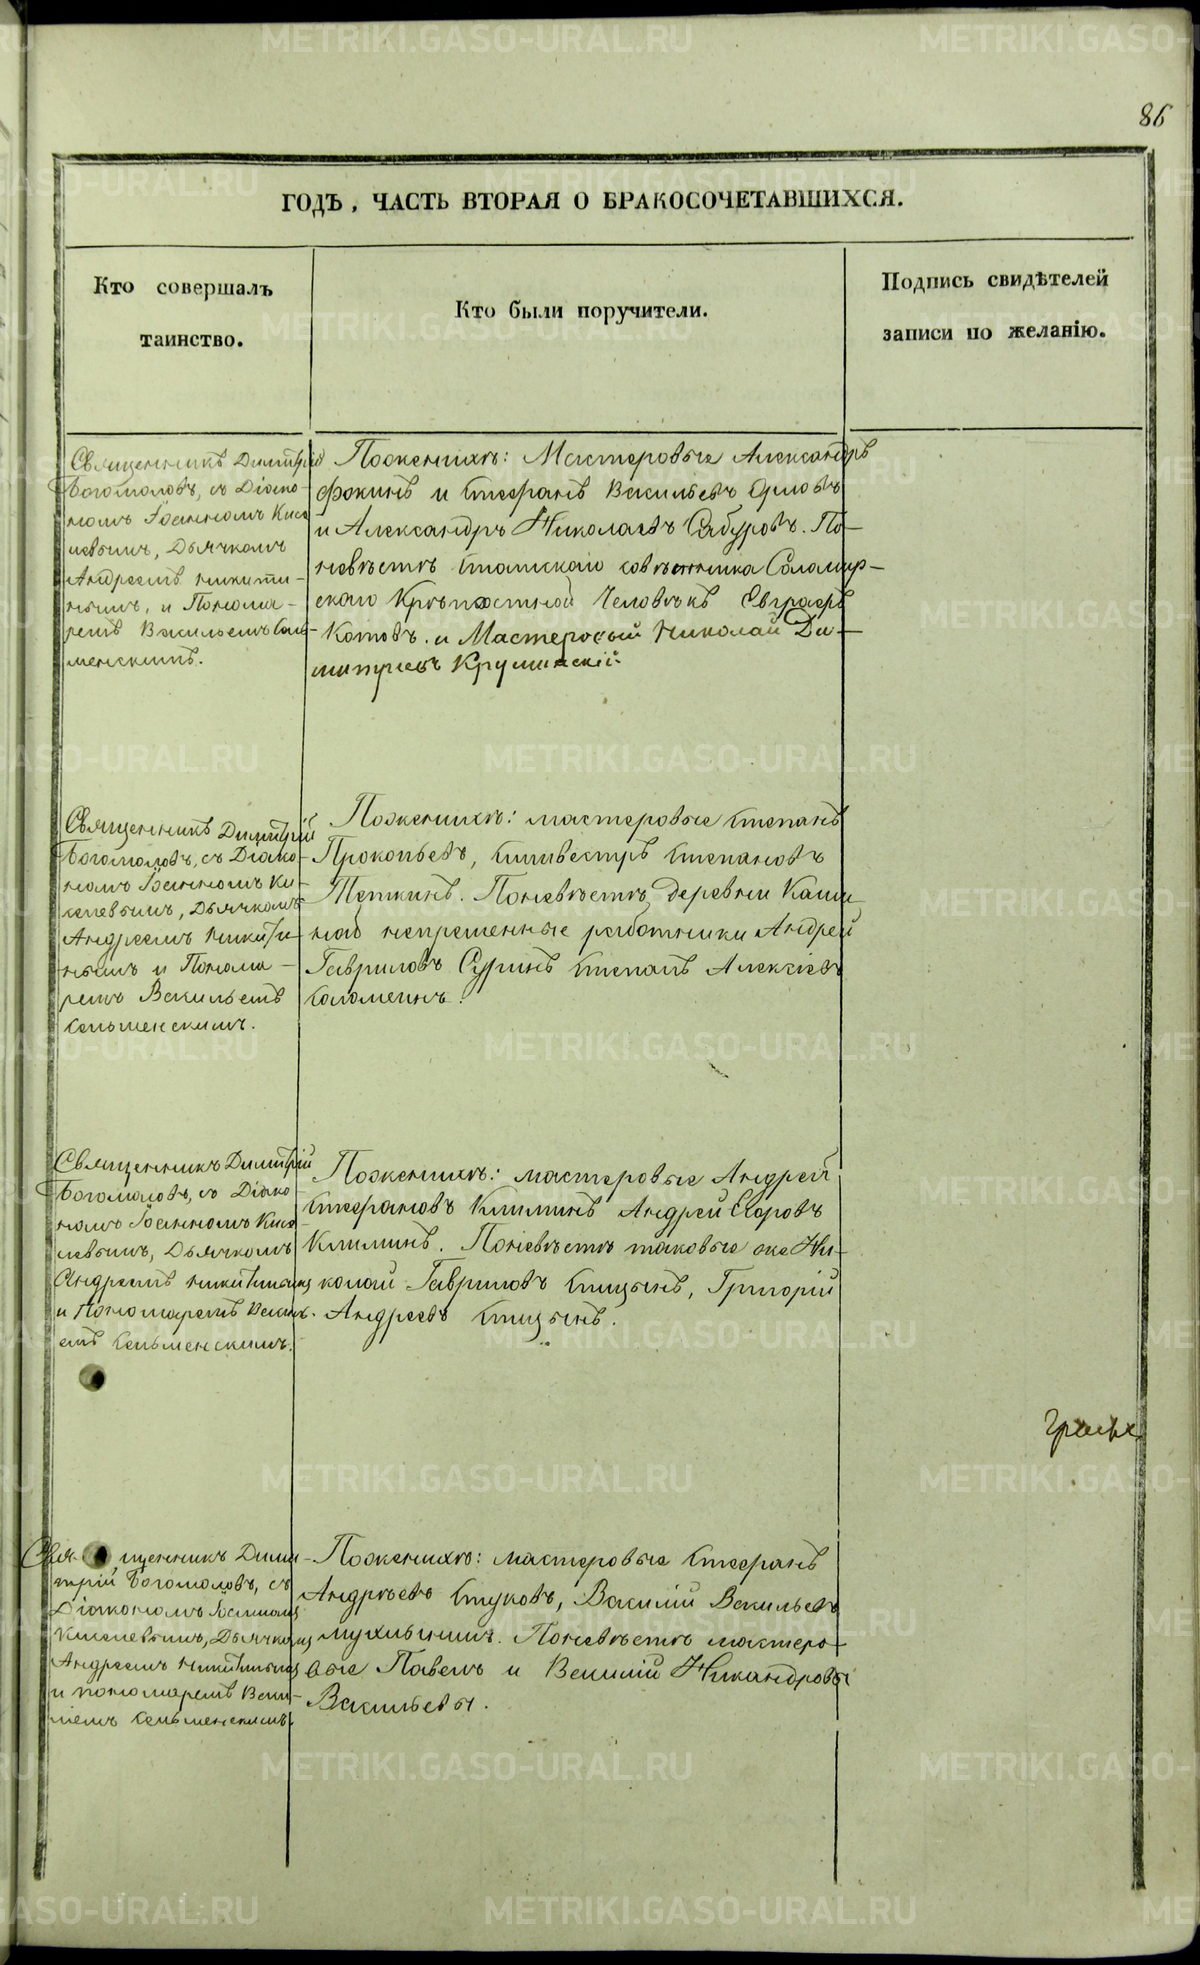 86
ГОДЪ, ЧАСТЬ ВТОРАЯ О БРАКОСОЧЕТАВШИХСЯ.
Кто совершалъ
таинство.
Кто были поручители.
Подпись свидѣтелей
записи по желанію.
Священникъ Димитрій
Богомоловъ, съ Діако-
номъ Іоанномъ Кисе
левымъ, Дьячкомъ
Андреемъ Никити-
нымъ, и Понома-
ремъ Васильемъ Сель-
менскимъ.
Поженихѣ: Мастеровые Александръ
Фокинъ и Стефанъ Васильевъ Орловъ
и Александръ Николаевъ Сабуровъ. По-
невѣстѣ Статскаго совѣтника Соломир-
скаго Крѣпостной Человѣкъ Евграфъ
Котовъ. и Мастеровый Николай Ди-
митріевъ Круминскій.
Священникъ Димитрій
Богомоловъ, съ Діако-
номъ Іоанномъ Ки-
селевымъ, Дьячкомъ
Андреемъ Никити-
нымъ и Понома-
ремъ Васильемъ
Сельменскимъ.
Поженихѣ: мастеровые Степанъ
Прокопьевъ, Сильвестръ Степановъ
Тепкинъ. Поневѣстѣ деревни Камен
ной непременные работники Андрей
Гавриловъ Суринъ Степанъ Алексѣевъ
Соломеинъ.
Священникъ Димитрій
Богомоловъ, съ Діако-
номъ Іоанномъ Кисе
левымъ, Дьячкомъ
Андреемъ Никитинымъ
и Пономаремъ Василь-
емъ Сельменскимъ.
Поженихѣ: мастеровые Андрей
Стефановъ Климинъ Андрей Егоровъ
Климинъ. Поневѣстѣ таковые же Ни-
колай Гавриловъ Спицынъ, Григорій
Андреевъ Спицынъ.
Свя- щенникъ Дими-
трій Богомоловъ, съ
Діакономъ Іоанномъ
Киселевымъ, Дьячкомъ
Андреемъ Никитинымъ
и пономаремъ Васи-
ліемъ Сельменскимъ.
Поженихѣ: мастеровые Стефанъ
Андрѣевъ Стуковъ, Василій Васильевъ
Мухлынинъ. Поневѣстѣ мастеро-
вые Павелъ и Василій Никандровы
Васильевы.